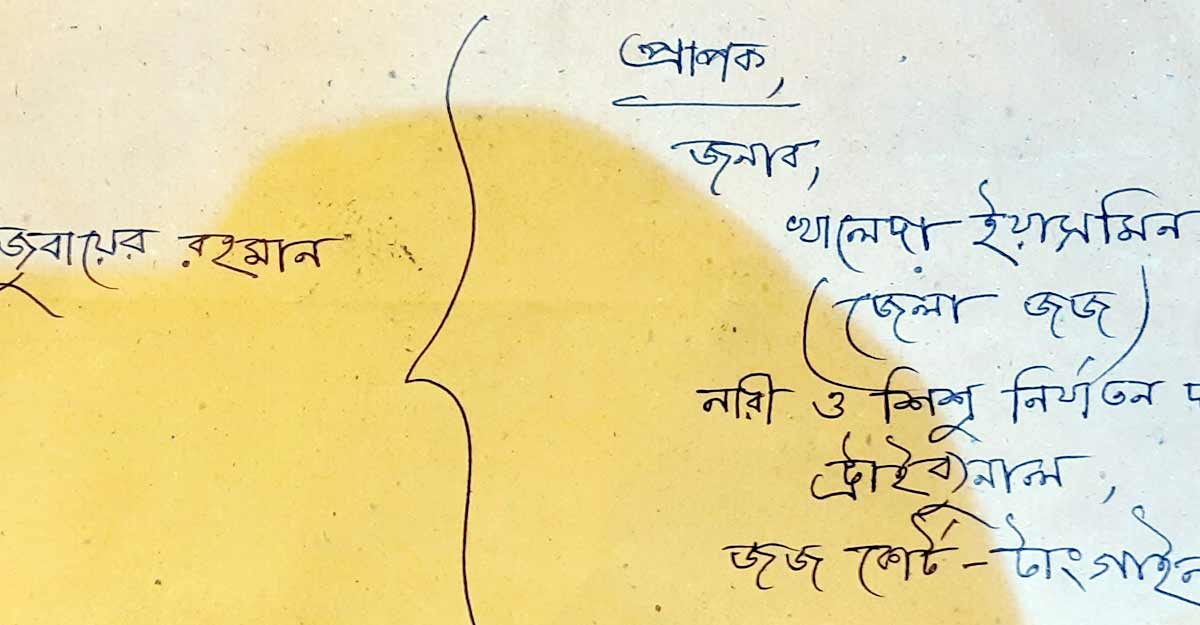 জুবায়ের রহমান
প্রাপক,
জনাব,
খালেদা ইয়াসমিন
(জেলা জজ)
নারী ও শিশু নির্যাতন
ট্রাইব্যুনাল,
জজ কোর্ট - টাংগাইল